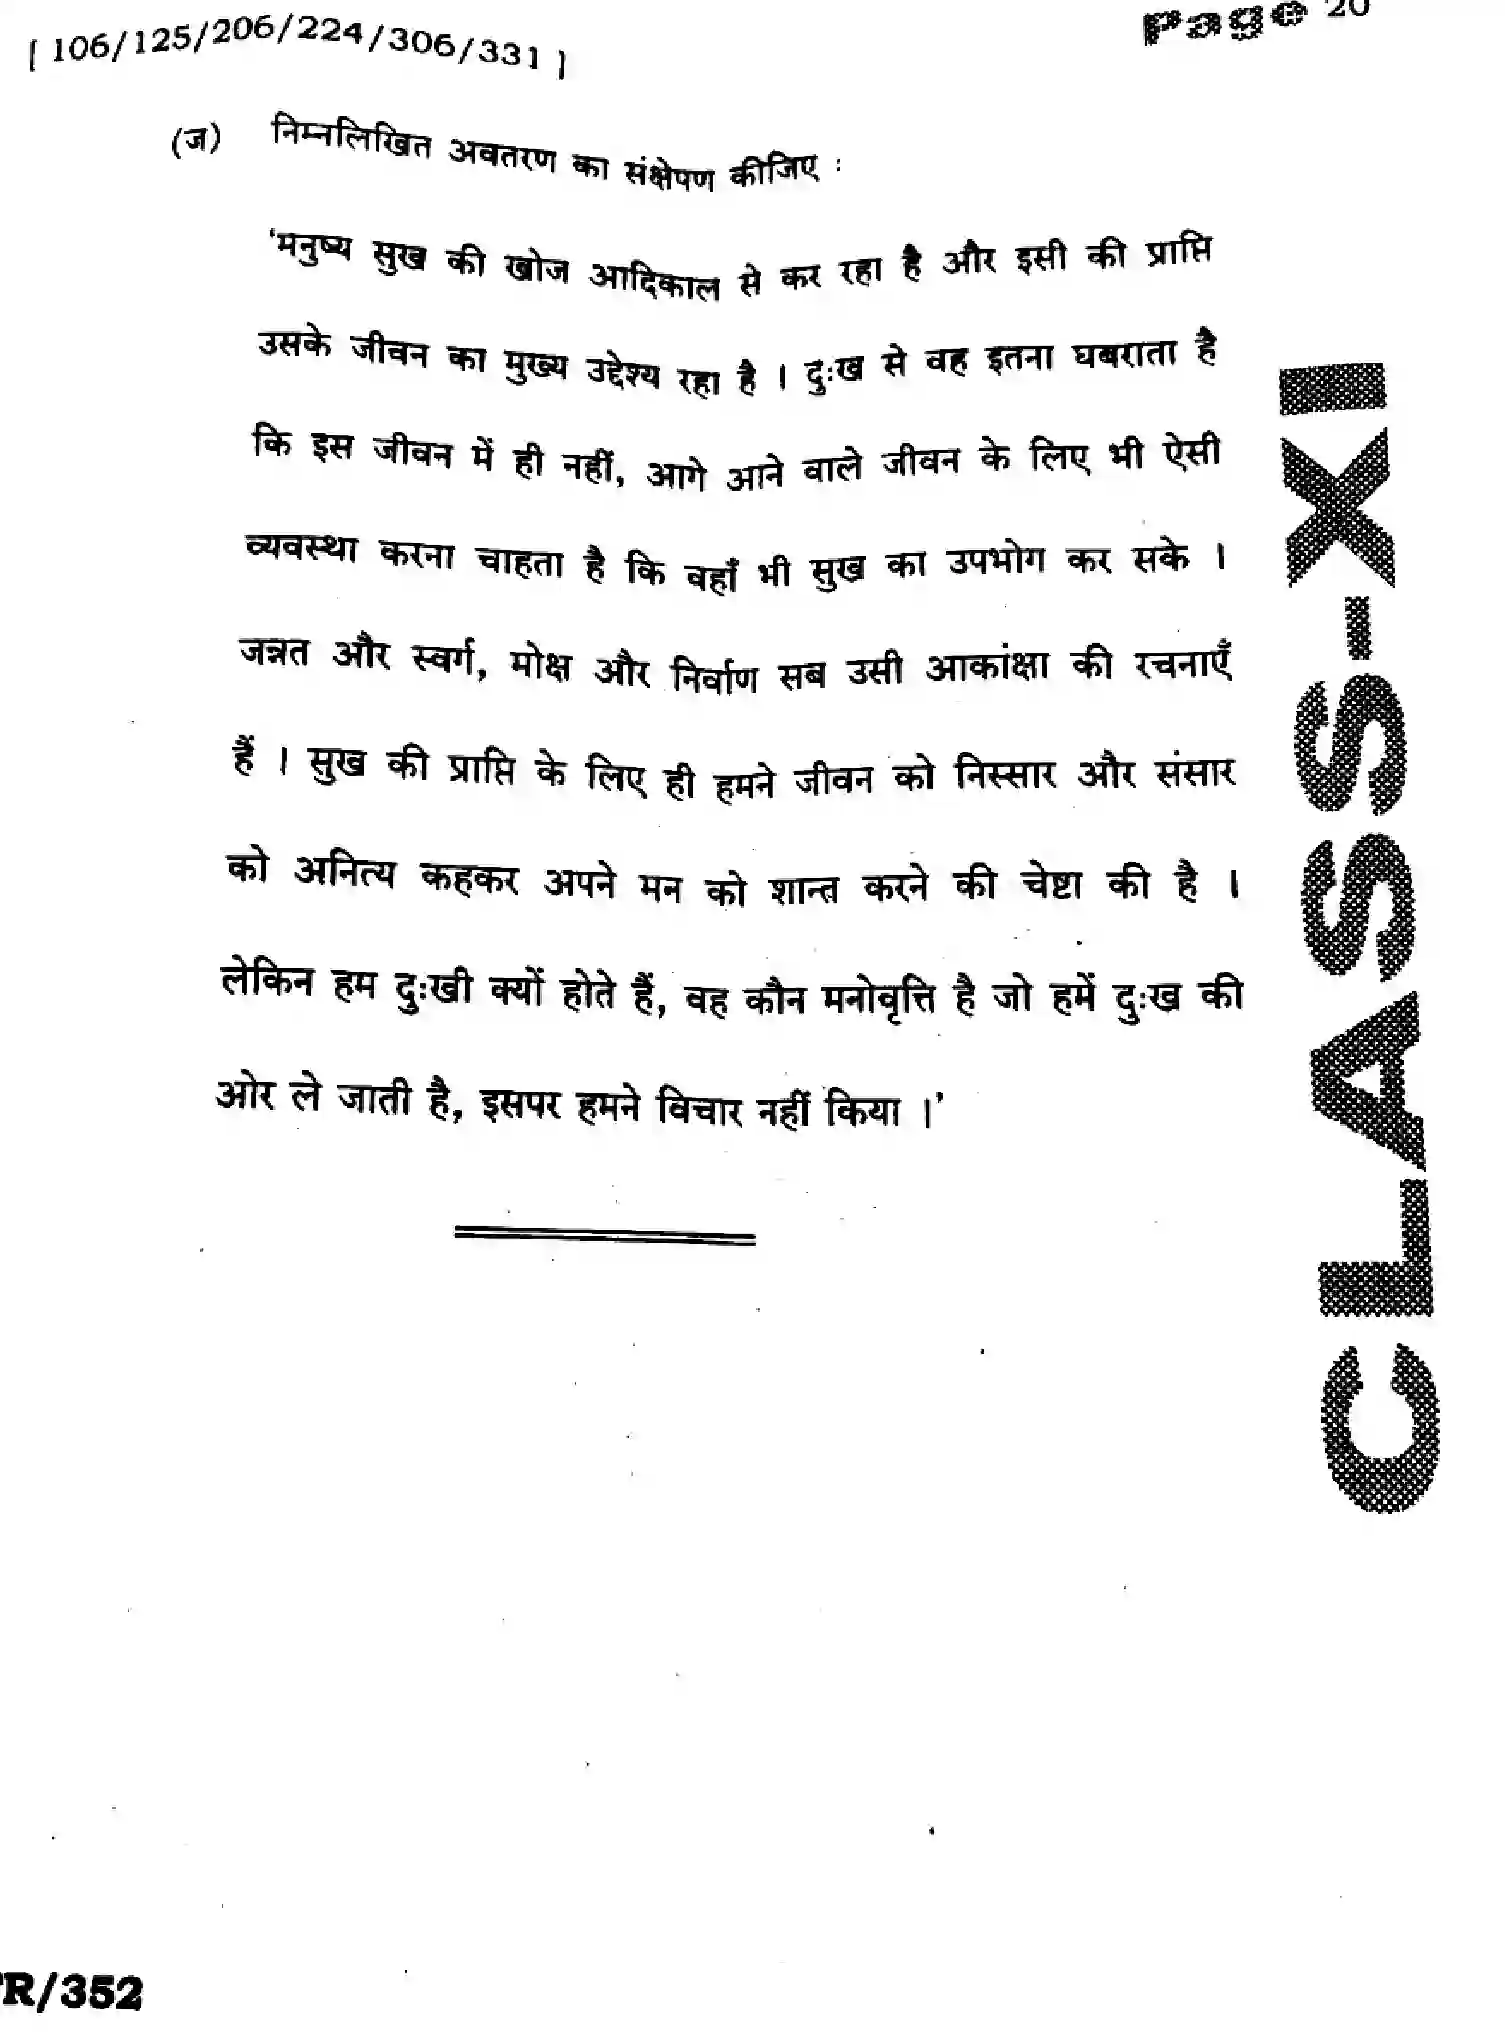 [ 106/125/206/224/306/331 ]
Page 20
(ज) निम्नलिखित अवतरण का संक्षेपण कीजिए :
'मनुष्य सुख की खोज आदिकाल से कर रहा है और इसी की प्राप्ति
उसके जीवन का मुख्य उद्देश्य रहा है । दुःख से वह इतना घबराता है
कि इस जीवन में ही नहीं, आगे आने वाले जीवन के लिए भी ऐसी
व्यवस्था करना चाहता है कि वहाँ भी सुख का उपभोग कर सके ।
जन्नत और स्वर्ग, मोक्ष और निर्वाण सब उसी आकांक्षा की रचनाएँ
हैं । सुख की प्राप्ति के लिए ही हमने जीवन को निस्सार और संसार
को अनित्य कहकर अपने मन को शान्त करने की चेष्टा की है ।
लेकिन हम दुःखी क्यों होते हैं, वह कौन मनोवृत्ति है जो हमें दुःख की
ओर ले जाती है, इसपर हमने विचार नहीं किया ।'
CLASS-XI
R/352